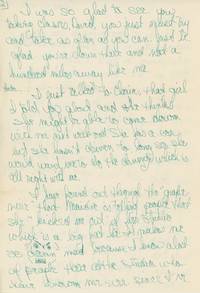 I was so glad to see you
taking classes, Carol, you just
and take as many as you can. Just be
glad you're down there and not a
hundred miles away like me.
I just talked to that girl
I told you about and she thinks
she might be able to come down
with me next weekend. She has a car
but she hasn't driven to long so she
would want me to do the driving which is
all right with me.
I have found out through the grape
vine that Maurice is telling people that
she kicked me out of his studio
which is a big fat lie. It makes me
so damn mad because I know alot
of people that at the Studio who
have known me ever since I've